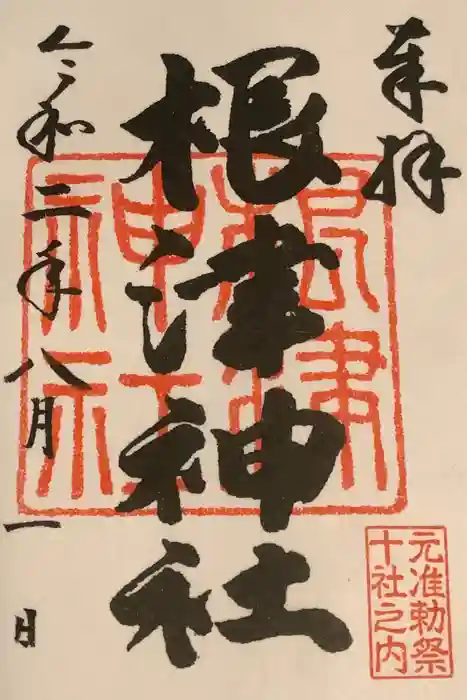 奉拝
根津神社
令和二年八月一日
根津神社
元准勅祭
十社之内